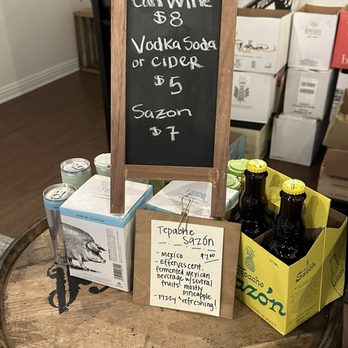 Can Wine
$8
Vodka Soda
or CIDER
$5
Sazon
$7
Tepache
Sazón
- Mexico $7.00
- Effervescent,
fermented Mexican
beverage w/several
fruits: mostly
pineapple
- Fizzy & refreshing!
Tepache
Sazón